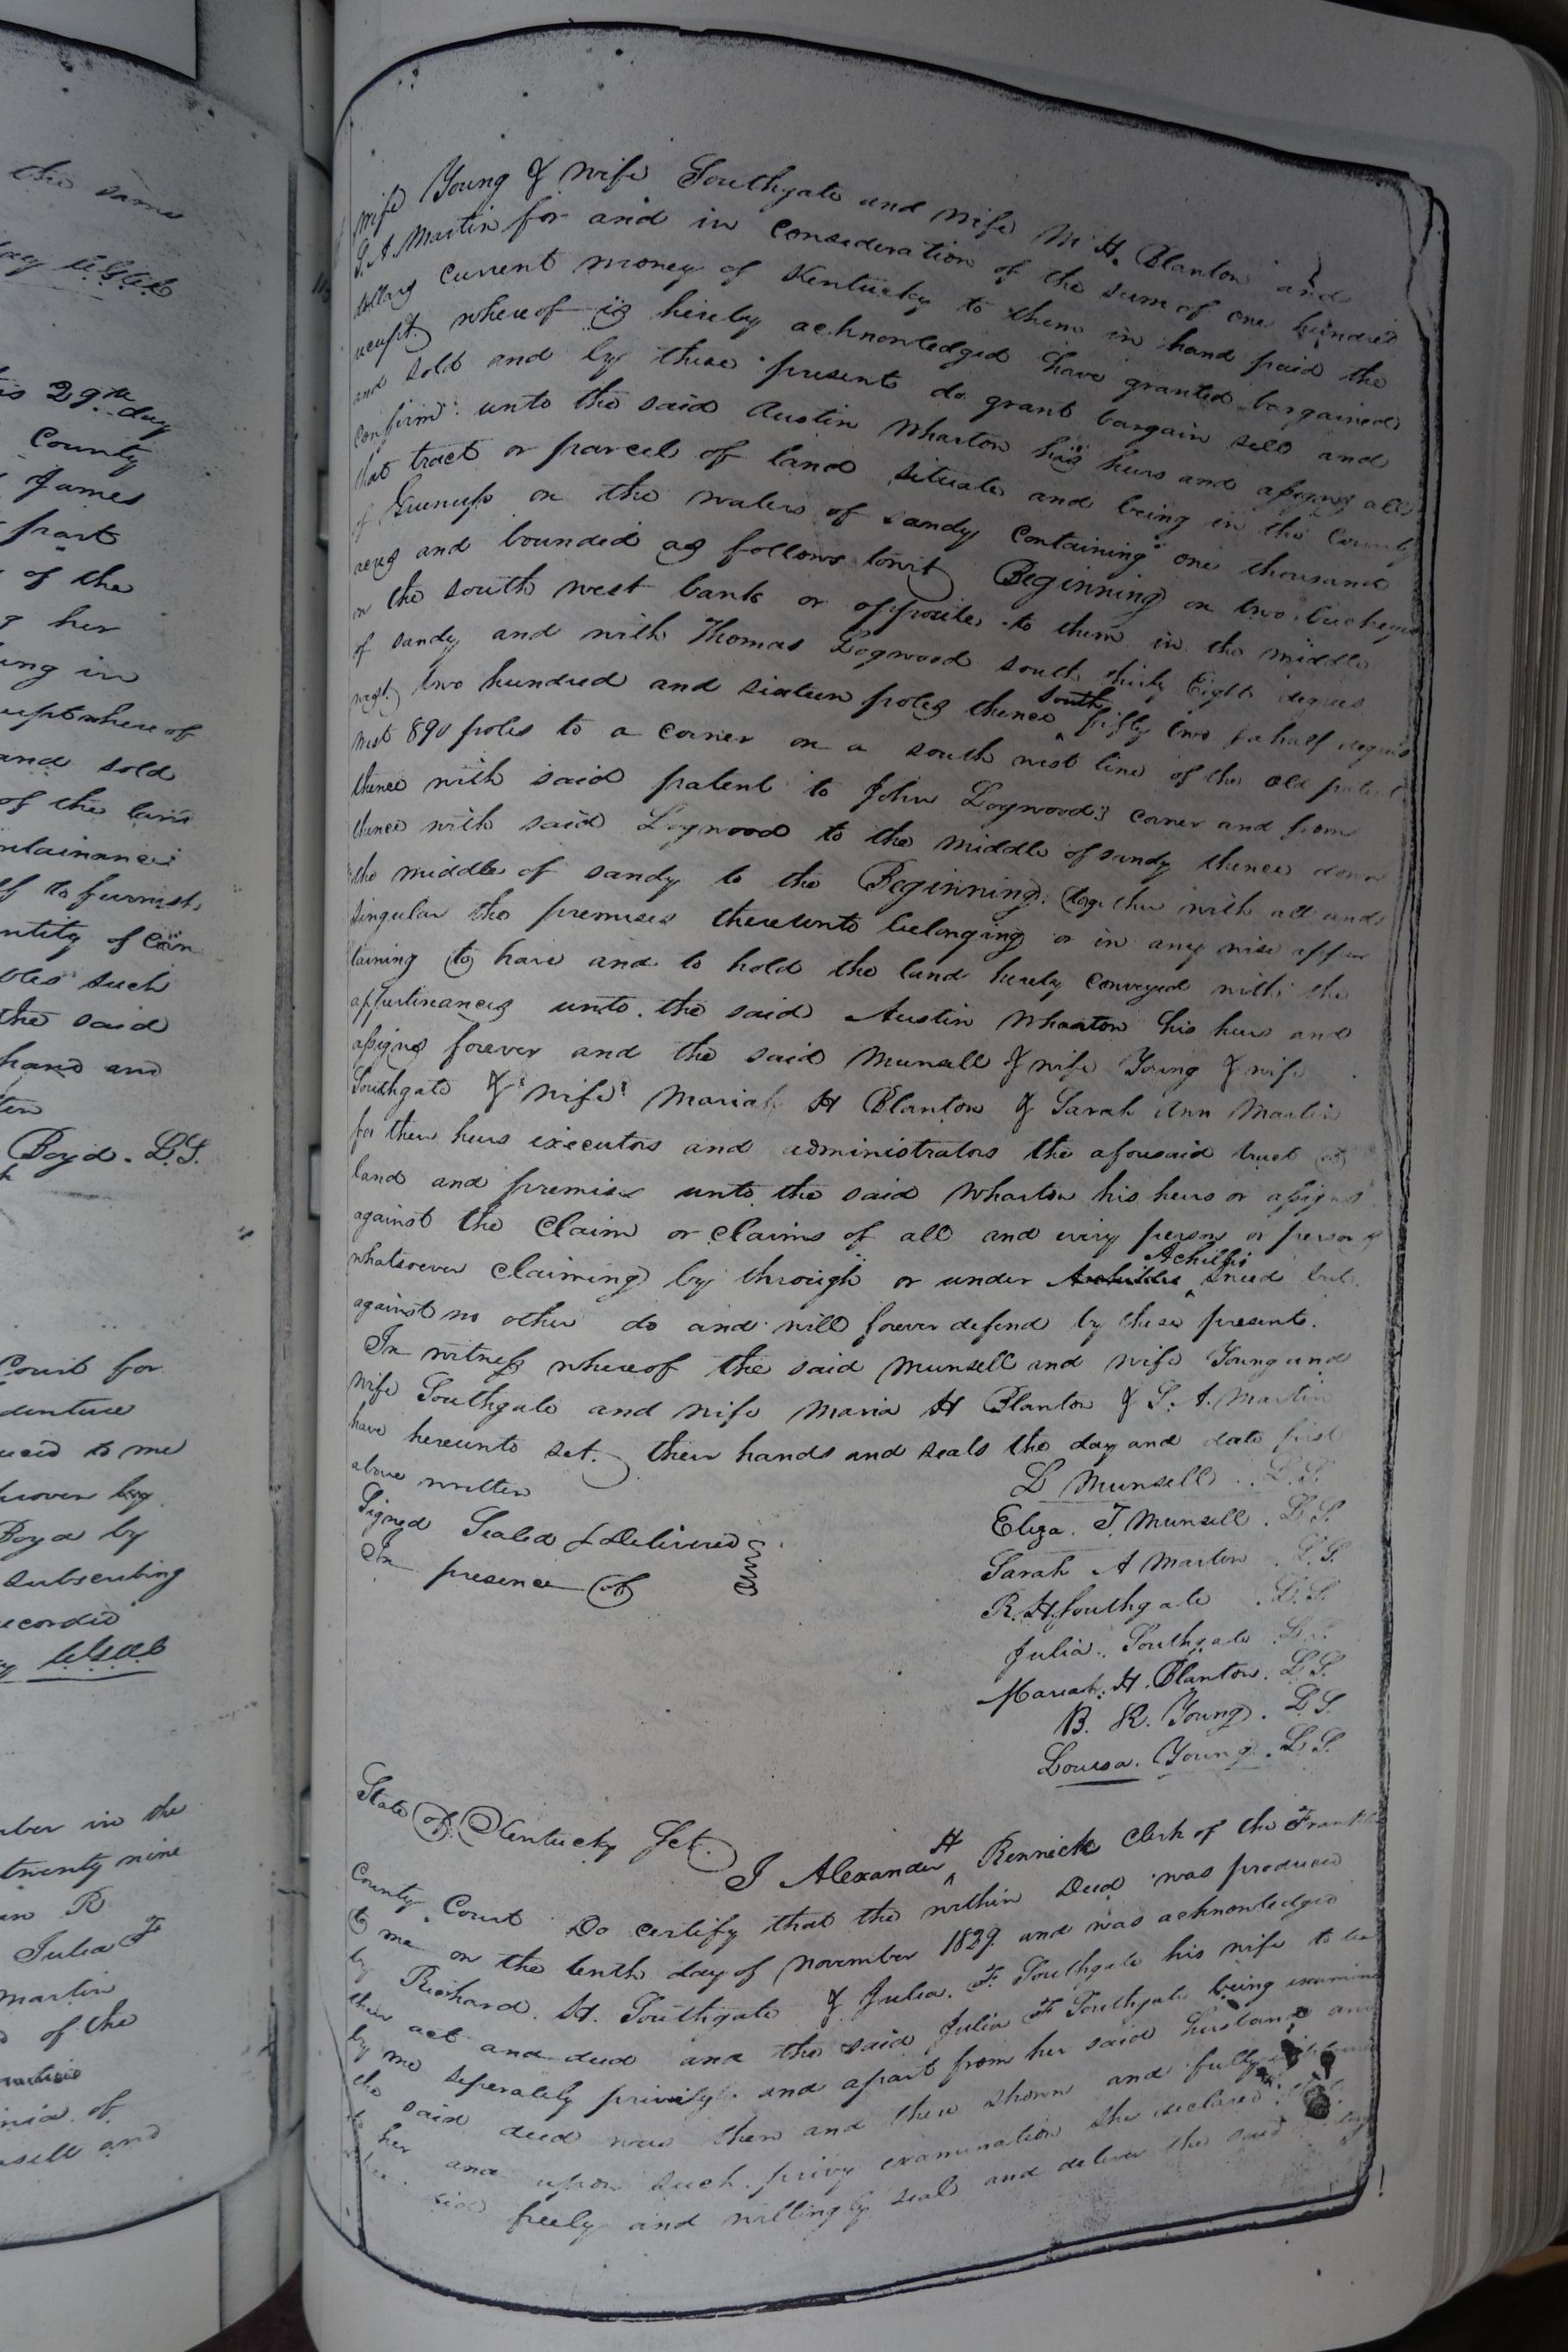 the same
is 29th day
County
James
part
of the
her
ing in
upt where of
and sold
of the land
to furnish
ntity of
such
the said
hand and
ten
Boyd. L.S.
Court for
denture
uced to me
Boyd by
subscribing
ecorded
mber in the
twenty nine
R
Julia F
martin
of the
of
sell and
wife Young & wife Southgate and wife M H. Blanton and
S. A Martin for and in consideration of the sum of one hundred
dollars current money of Kentucky to them in hand paid the
receipt whereof is hereby acknowledged have granted bargained
and sold and by these present do grant bargain sell and
confirm unto the said Austin Wharton his heirs and assigns all
that tract or parcel of land situate and being in the County
of Greenup on the waters of sandy containing one thousand
acres and bounded as follows towit Beginning on two buckeyes
on the south west bank or opposite to them in the middle
of sandy and with Thomas Logwood south thirty Eight degrees
west two hundred and sixteen poles thence south fifty two & a half degrees
west 890 poles to a corner on a south west line of the old patent
thence with said patent to John Logwood's corner and from
thence with said Logwood to the middle of sandy thence down
the middle of sandy to the Beginning together with all and
singular the premises thereunto belonging or in any wise apper
taining to have and to hold the land hereby conveyed with the
appurtinances unto the said Austin Wharton his heirs and
assigns forever and the said Munsell & wife Young & wife
Southgate & wife Mariah H Blanton & Sarah Ann Martin
for their heirs executors and administrators the aforesaid tract of
land and premises unto the said Wharton his heirs or assigns
against the Claim or claims of all and every person or persons
whatsoever claiming by through or under Achilles Sneed but
against no other do and will forever defend by these presents.
In witness whereof the said Munsell and wife Young and
wife Southgate and wife Maria H Blanton & S. A. Martin
have hereunto set their hands and seals the day and date first
above written
Signed Sealed & Delivered
In presence of
L Munsell. L.S.
Eliza. T. Munsell. L.S.
Sarah A Martin. L.S.
R. H. Southgate L.S.
Julia. Southgate L.S.
Mariah. H. Blanton. L.S.
B. R. Young. L.S.
Louisa. Young. L.S.
State of Kentucky Sct.
I Alexander H Rennick Clerk of the Franklin
County Court Do certify that the within Deed was produced
to me on the tenth day of November 1829. and was acknowledged
by Richard. H. Southgate & Julia. F. Southgate his wife to be
their act and deed and the said Julia F Southgate being examined
by me seperately privily and apart from her said husband and
the said deed was then and there shown and fully
to her and upon such privy examination she declared
did freely and willingly seal and deliver the said